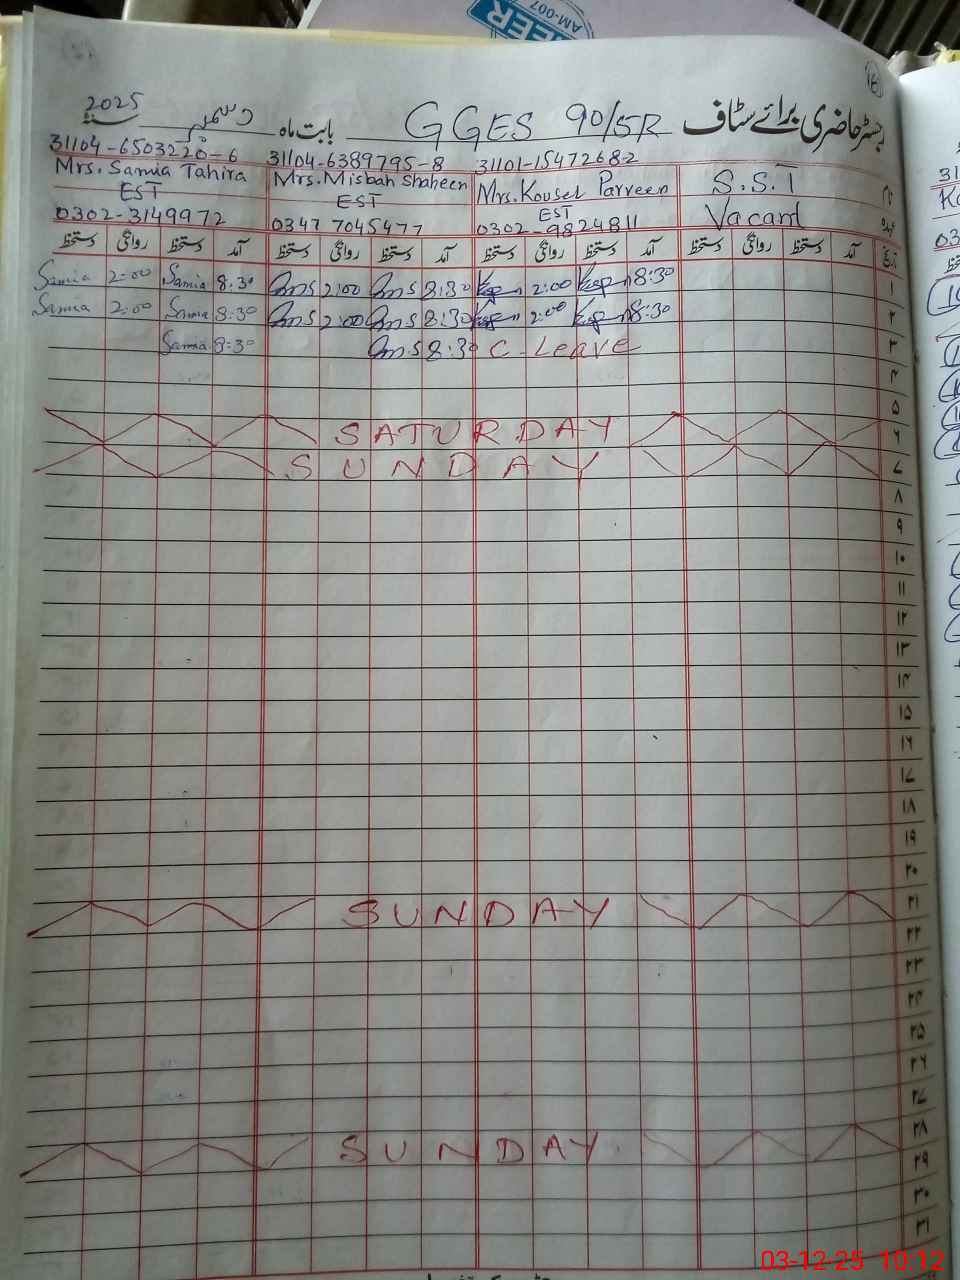 AM-007
رجسٹر حاضری برائے سٹاف GGES 90/5R بابت ماہ دسمبر سنہ 2025
31104-6503220-6 31104-6389795-8 31101-1547268-2
Mrs. Samia Tahira Mrs. Misbah Shaheen Mrs. Kouser Parveen S.S.T نام
EST EST EST
0302-3149972 0347 7045477 0302-9824811 Vacant عہدہ
تاریخ آمد دستخط روانگی دستخط آمد دستخط روانگی دستخط آمد دستخط روانگی دستخط آمد دستخط روانگی دستخط
Samia 2:00 Samia 8:30 2:00 8:30 2:00 8:30 ۱
Samia 2:00 Samia 8:30 2:00 8:30 2:00 8:30 ۲
Samia 8:30 8:30 C-Leave ۳
۴
۵
SATURDAY ۶
SUNDAY ۷
۸
۹
۱۰
۱۱
۱۲
۱۳
۱۴
۱۵
۱۶
۱۷
۱۸
۱۹
۲۰
SUNDAY ۲۱
۲۲
۲۳
۲۴
۲۵
۲۶
۲۷
SUNDAY ۲۸
۲۹
۳۰
۳۱
03-12-25 10:12